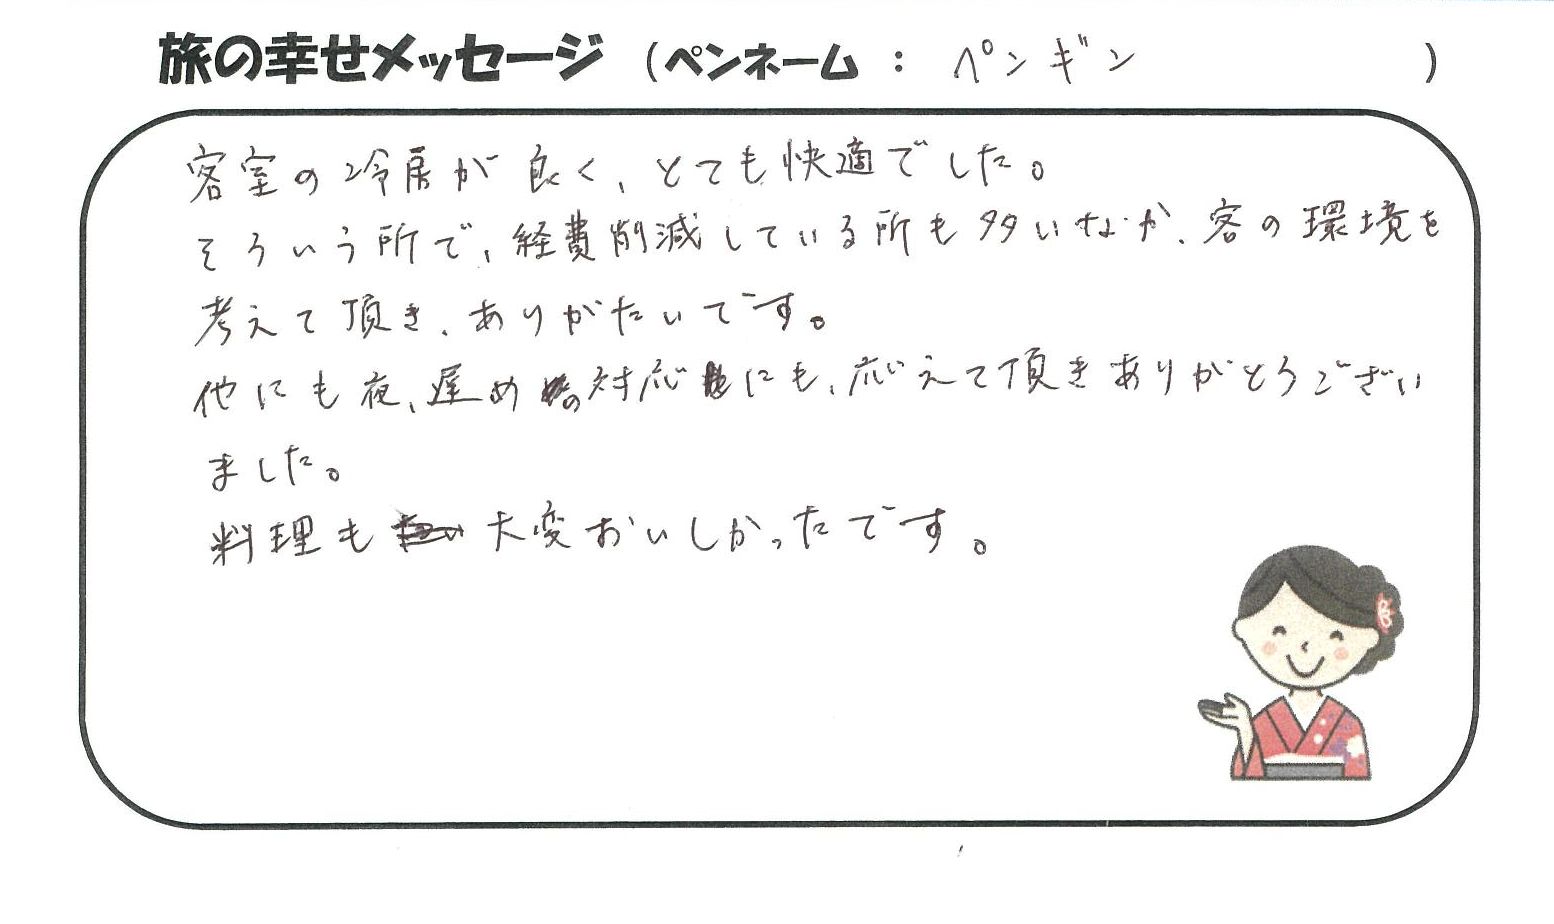 旅の幸せメッセージ（ペンネーム：ペンギン）
客室の冷房が良く、とても快適でした。
そういう所で、経費削減している所も多いなか、客の環境を
考えて頂き、ありがたいです。
他にも夜、遅めの対応にも、応えて頂きありがとうござい
ました。
料理も大変おいしかったです。